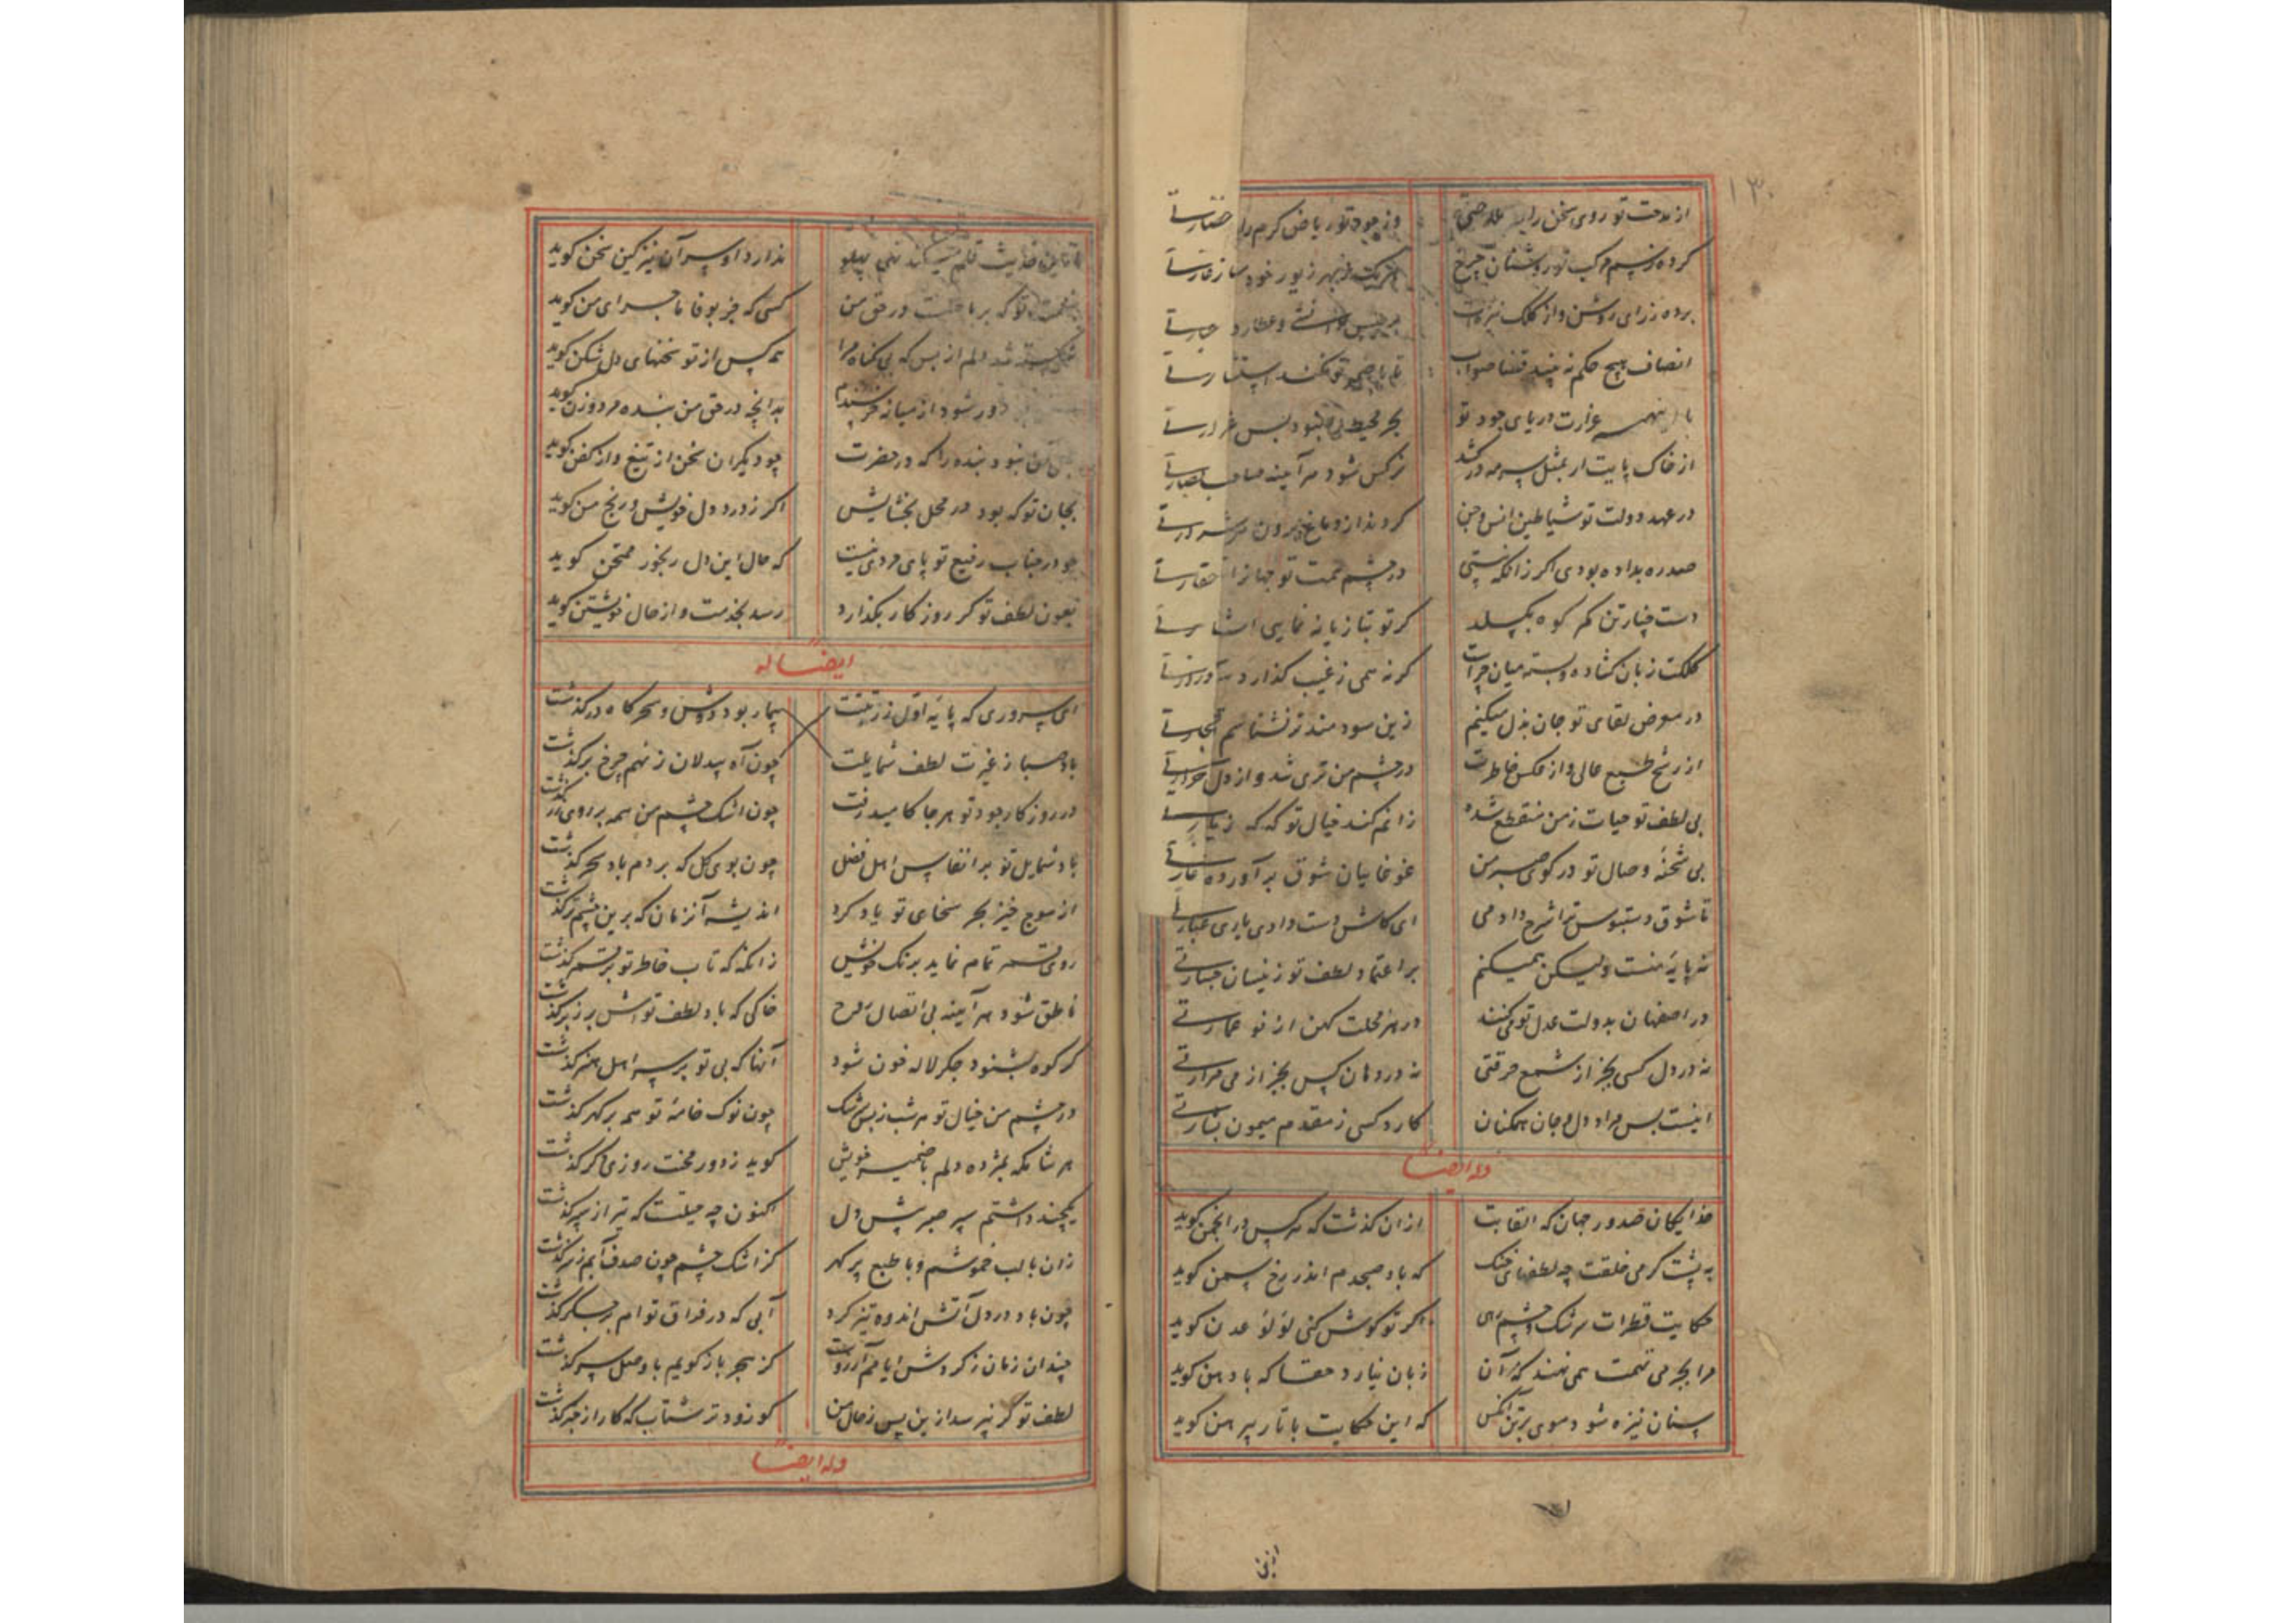 ۱۳۰
از مدحت تو روی سخن را نضارتی
وز جود تو ریاض کرم را
کرده نسیم کب نور روشنان چرخ
هر یک ز بهر زیور خود ساز غارتی
برده ز رای روشن و از کلک تیرهات
برجیس و عطارد
انصاف هیچ حکم نه بیند قضا صواب
تا با ضمیر تو نکند استشارتی
با این همه غزارت دریای جود تو
بحر محیط را نبود بس غزارتی
از خاک پایت ار بمثل سرمه درکشد
نرکس شود هر آینه صاحب بصارتی
در عهد دولت تو شیاطین انس و جن
کردند از دماغ برون هر شرارتی
صد ره بداده بودی اکر زانکه نیستی
در چشم همت تو جهانرا حقارتی
دست چنار تن کمر کوه بکسلد
کر تو بتازیانه نمایی اشارتی
کلکت زبان کشاده و بسته میان چراست
کر نه همی ز غیب کذارد سفارتی
در معرض لقای تو جان بذل میکنم
زین سودمندتر نشناسم تجارتی
از رشح طبع عالی و از عکس خاطرت
در چشم من تری شد و از دل حرارتی
بی لطف تو حیات ز من منقطع شده
زانم کند خیال تو که که زیارتی
بی شحنه وصال تو در کوی صبر من
غوغاییان شوق برآورده غارتی
تا شوق دستبوس ترا شرح دادمی
ای کاش دست دادی باری عبارتی
نه پایه منست ولیکن همیکنم
بر اعتماد لطف تو زینسان جسارتی
در اصفهان بدولت عدل تو می کنند
در هر محلت کهن از نو عمارتی
نه در دل کسی بجز از شمع حرقتی
نه در دهان کس بجز از می مرارتی
اینست بس مراد دل و جان همکنان
کارد کسی ز مقدم میمون بشارتی
وله ایضا
خدایکان صدور جهان که القابت
از ان کذشت که هر کس در انجمن کوید
به پشت کرمی خلقت چه لطفهای خنک
که باد صبحدم اندر رخ سمن کوید
حکایت قطرات سرشک چشم رهی
اکر تو کوش کنی لؤلؤ عدن کوید
مرا بجرمی تهمت همی نهند که آن
زبان نیارد حقا که با دهن کوید
سنان نیزه شود موی بر تن آنکس
که این حکایت با تار پیرهن کوید
ندارد او سر آن نیز کین سخن کوید
تو که بر باطلست در حق من
کسی که جز بوفا ماجرای من کوید
شکسته شد دلم از بس که بی کناه مرا
همه کس از تو سخنهای دل شکن کوید
دور شود از میانه خرسندم
بدانچه در حق من بنده مرد و زن کوید
نبود بنده را که در حضرت
چو دیکران سخن از تیغ و از کفن کوید
بجان تو که بود در محل بخشایش
اکر ز درد دل خویش و رنج من کوید
چو در جناب رفیع تو پای مردی نیست
که حال این دل رنجور ممتحن کوید
بعون لطف تو کر روزکار بکذارد
رسد بخدمت و از حال خویشتن کوید
ایضا له
ای سروری که پایه اول ز رتبتت
بیمار بود دوش و سحرکاه درکذشت
باد صبا ز غیرت لطف شمایلت
چون آه بیدلان ز نهم چرخ برکذشت
در روزکار جود تو هر جا کامید رفت
چون اشک چشم من همه بر روی زر کذشت
یاد شمایل تو بر انفاس اهل فضل
چون بوی کل که بر دم باد سحر کذشت
از موج خیز بحر سخای تو یاد کرد
اندیشه آنزمان که برین چشم تر کذشت
روی قمر تمام نماید برنک خویش
زانکه که تاب خاطر تو بر قمر کذشت
ناطق شود هر آینه بی اتصال روح
خاکی که باد لطف تواش بر زبر کذشت
کر کوه بشنود جکر لاله خون شود
آنها که بی تو بر سر اهل هنر کذشت
در چشم من خیال تو هر شب ز بس سرشک
چون نوک خامه تو همه بر کهر کذشت
هر شانکه غمزده دلم با ضمیر خویش
کوید ز دور محنت روزی دکر کذشت
یکچند داشتم سپر صبر پیش دل
اکنون چه حیلتست که تیر از سپر کذشت
زان با لب خموشم و با طبع پر کهر
کز اشک چشم چون صدف آبم ز سر کذشت
چون باد در دل آتش اندوه تیز کرد
آبی که در فراق توام بر جکر کذشت
چندان زمان ز کردش ایامم آرزوست
کز هجر باز کویم با وصل سرکذشت
لطف تو کر نپرسد ازین پس ز حال من
کو زودتر شتاب که کار از خبر کذشت
وله ایضا